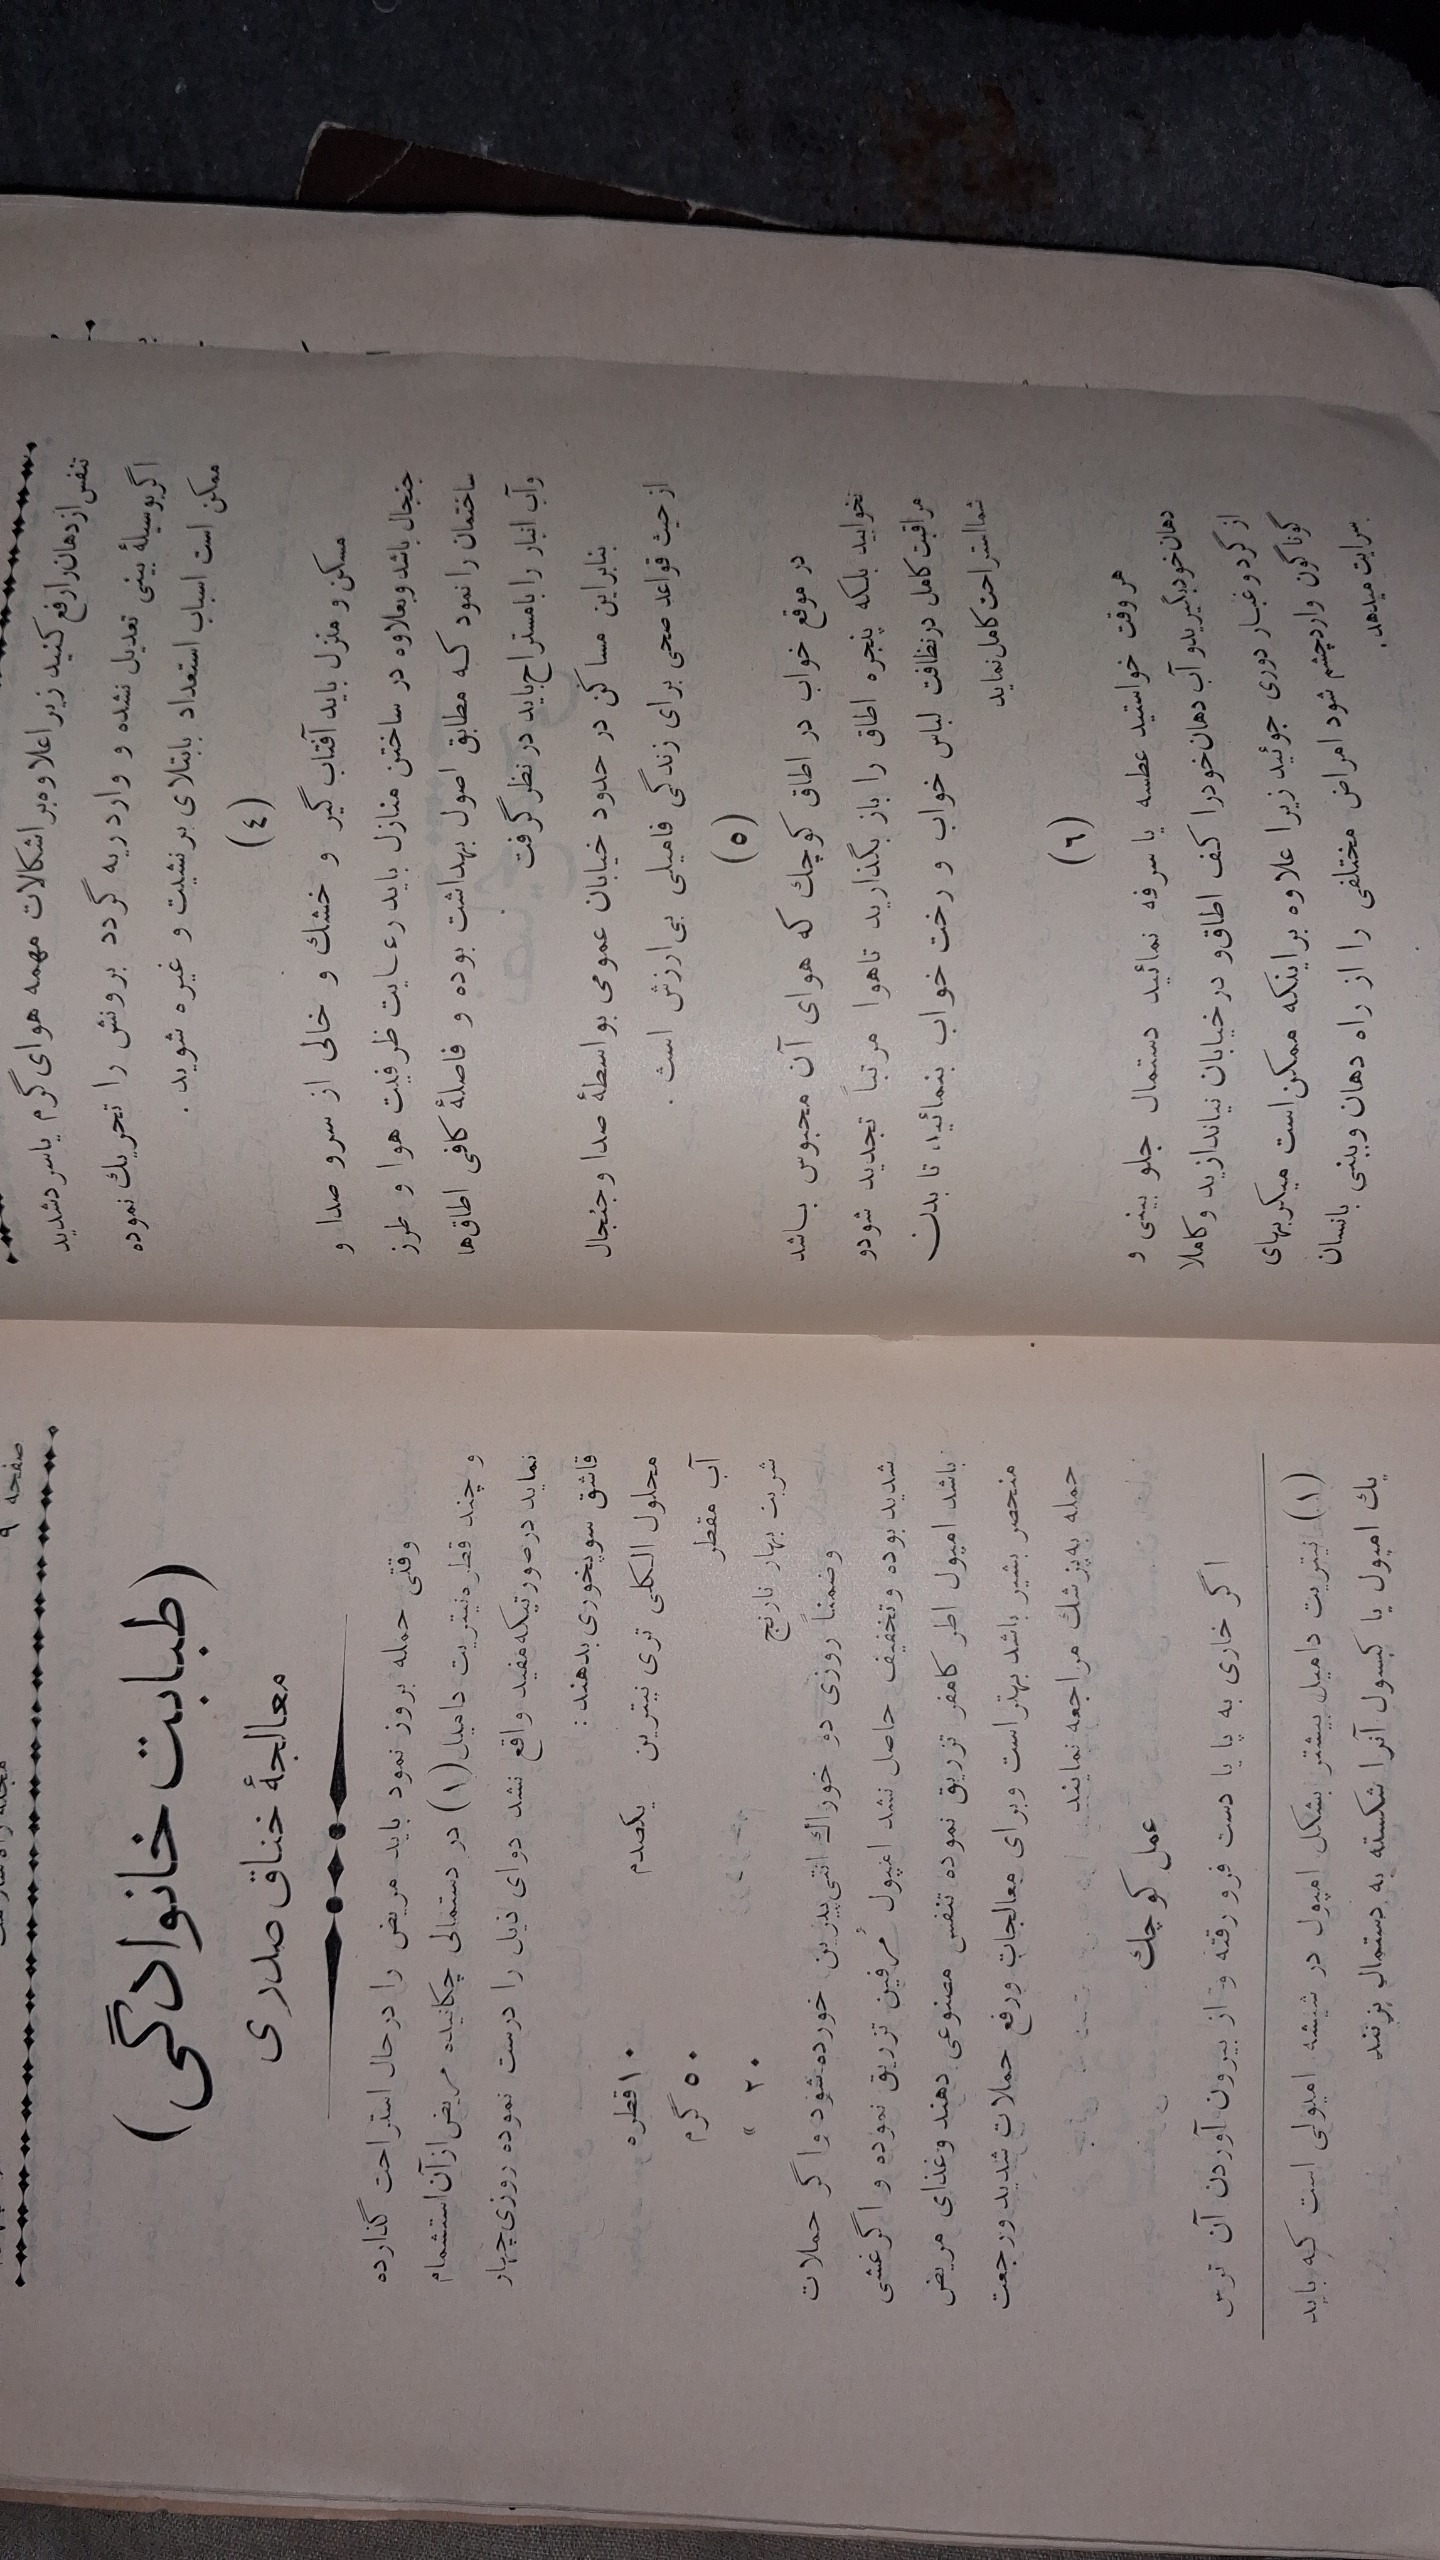 تنفس از دهان را رفع کنید زیرا علاوه بر اشکالات مهمه هوای گرم یا سرد شدید
اگر بوسیلهٔ بینی تعدیل نشده و وارد ریه گردد برونش را تحریك نموده
ممکن است اسباب استعداد بابتلای برنشیت و غیره شوید .
(٤)
مسکن و منزل باید آفتاب گیر و خشك و خالی از سر و صدا و
جنجال باشد و بعلاوه در ساختن منازل باید رعایت ظرفیت هوا و طرز
ساختمان را نمود که مطابق اصول بهداشت بوده و فاصلهٔ کافی اطاق‌ها
و آب انبار را با مستراح باید در نظر گرفت
بنابراین مساکن در حدود خیابان عمومی بواسطهٔ صدا و جنجال
از حیث قواعد صحی برای زندگی فامیلی بی‌ارزش است .
(٥)
در موقع خواب در اطاق کوچك که هوای آن محبوس باشد
نخوابید بلکه پنجره اطاق را باز بگذارید تا هوا مرتباً تجدید شود و
مراقبت کامل در نظافت لباس خواب و رخت خواب بنمائید، تا بدن
شما استراحت کامل نماید
(٦)
هر وقت خواستید عطسه یا سرفه نمائید دستمال جلو بینی و
دهان خود بگیرید و آب دهان خود را کف اطاق و در خیابان نیاندازید و کاملا
از گرد و غبار دوری جوئید زیرا علاوه بر اینکه ممکن است میکربهای
گوناگون وارد چشم شود امراض مختلفی را از راه دهان و بینی بانسان
سرایت میدهد.
صفحه ٩
(طبابت خانوادگی)
معالجهٔ خناق صدری
وقتی حمله بروز نمود باید مریض را در حال استراحت گذارده
و چند قطره نیتریت دامیل (۱) در دستمالی چکانیده مریض از آن استشمام
نماید در صورتیکه مفید واقع نشد دوای ذیل را درست نموده روزی چهار
قاشق سوپخوری بدهند :
محلول الکلی تری نیترین یکصدم ۱۰ قطره
آب مقطر ۵۰ گرم
شربت بهار نارنج ۲۰ »
و ضمناً روزی دو خوراك انتی پیرین خورده شود و اگر حملات
شدید بوده و تخفیف حاصل نشد امپول مُرفین تزریق نموده و اگر غشی
باشد امپول اطر کامفر تزریق نموده تنفس مصنوعی دهند و غذای مریض
منحصر بشیر باشد بهتر است و برای معالجات و رفع حملات شدید و رجعت
حمله به پزشك مراجعه نمایند
عمل کوچك
اگر خاری به پا یا دست فرو رفته و از بیرون آوردن آن ترس
(۱) نیتریت دامیل بیشتر بشکل امپول در شیشه امپولی است که باید
یك امپول یا کبسول آنرا شکسته به دستمال بزنند